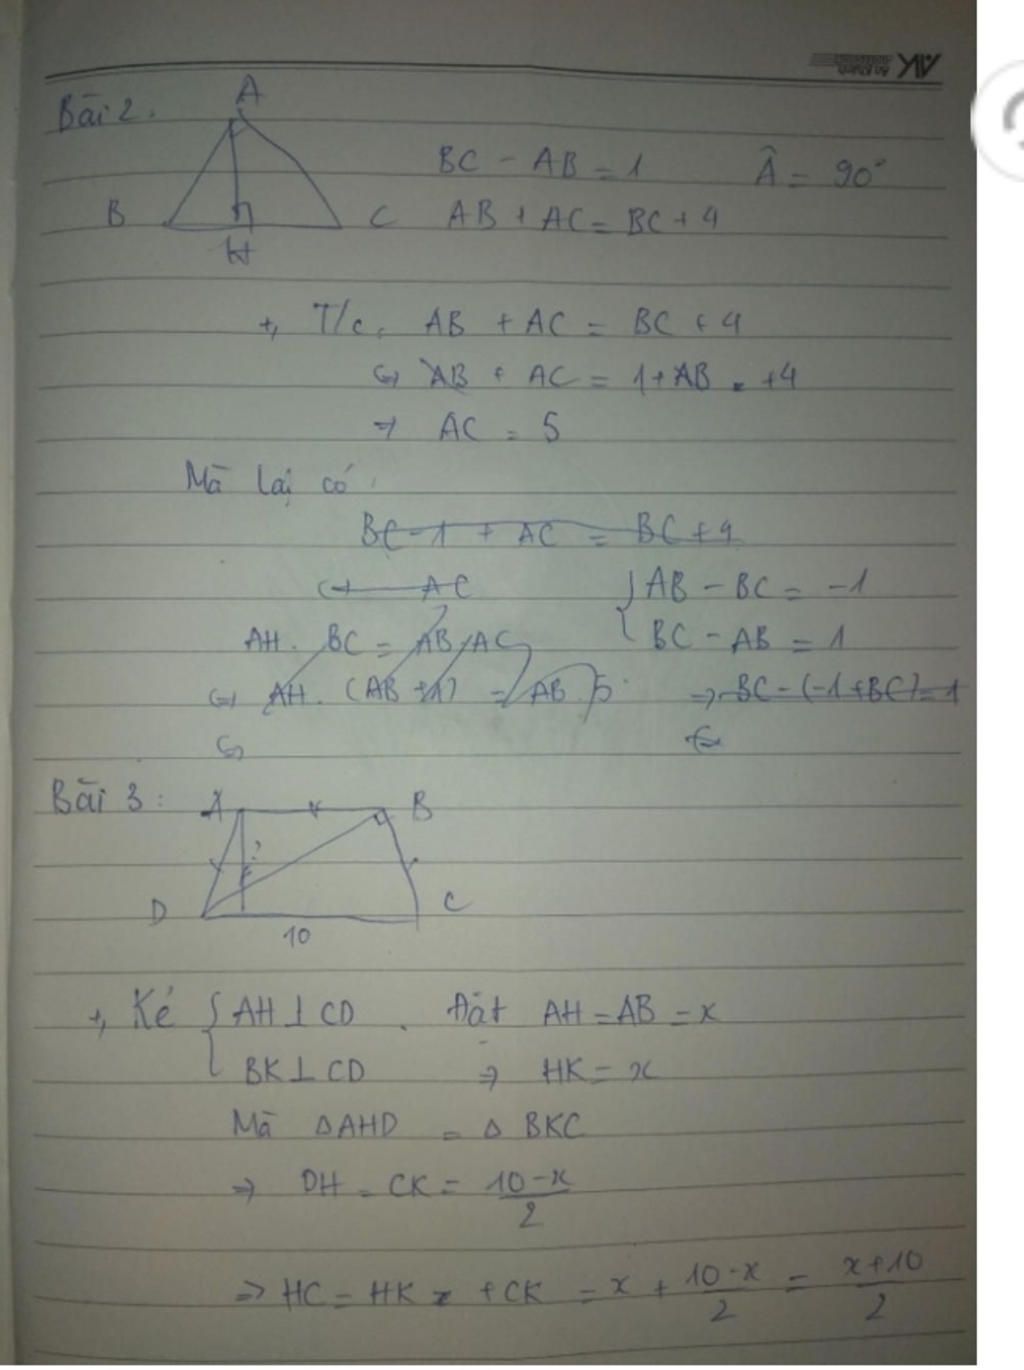 Bài 2.
A
B
C
H
BC - AB = 1    Â = 90°
AB + AC = BC + 4
+, T/c: AB + AC = BC + 4
⇔ AB + AC = 1 + AB + 4
⇒ AC = 5
Mà lại có
BC - 1 + AC = BC + 4
AC
{ AB - BC = -1
AH . BC = AB . AC
BC - AB = 1
⇔ AH . (AB + 1) = AB . 5
⇒ BC - (-1 + BC) = 1
⇔
Bài 3:
A
B
?
D
C
10
+, Kẻ { AH ⊥ CD . Đặt AH = AB = x
BK ⊥ CD ⇒ HK = x
Mà ΔAHD = ΔBKC
⇒ DH = CK = (10-x)/2
⇒ HC = HK + CK = x + (10-x)/2 = (x+10)/2